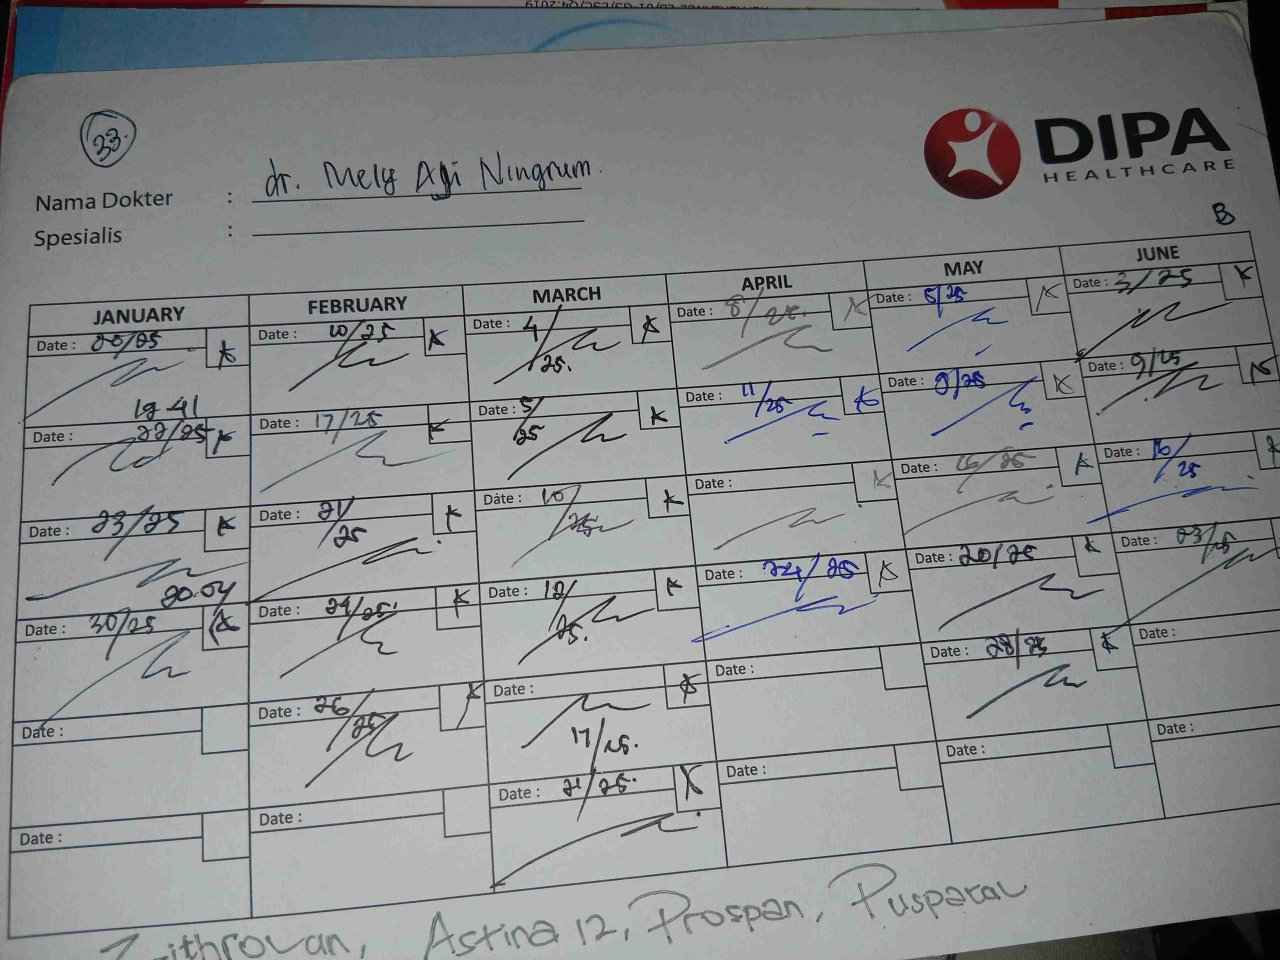 33.
DIPA
HEALTHCARE
Nama Dokter : dr. Mely Agi Ningrum.
Spesialis :
B
JANUARY FEBRUARY MARCH APRIL MAY JUNE
Date : 20/25 K Date : 10/25 K Date : 4/25. K Date : 8/25. K Date : 5/25 K Date : 3/25 K
19-41
Date : 22/25 K Date : 17/25 K Date : 5/25 K Date : 11/25 K Date : 9/25 K Date : 9/25 K
Date : 23/25 K Date : 21/25 K Date : 10/25 K Date : K Date : 15/25 K Date : 16/25 K
20.04
Date : 30/25 K Date : 24/25. K Date : 12/25. K Date : 24/25 K Date : 20/25 K Date : 23/25
Date : Date : 26/25 K Date : 17/25. K Date : Date : 28/25 K Date :
Date : Date : Date : 21/25. K Date : Date : Date :
Zithrovan, Astina 12, Prospan,